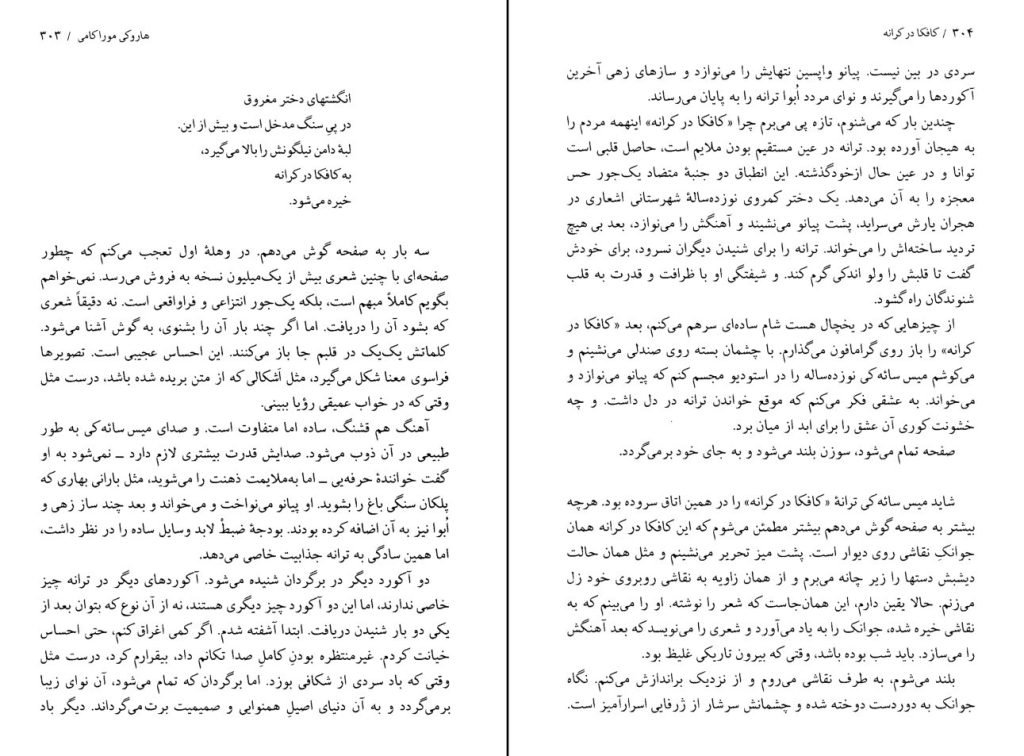 هاروکی موراکامی / ۳۰۳
انگشتهای دختر مغروق
در پی سنگ مدخل است و بیش از این.
لبهٔ دامن نیلگونش را بالا می‌گیرد،
به کافکا در کرانه
خیره می‌شود.
سه بار به صفحه گوش می‌دهم. در وهلهٔ اول تعجب می‌کنم که چطور
صفحه‌ای با چنین شعری بیش از یک‌میلیون نسخه به فروش می‌رسد. نمی‌خواهم
بگویم کاملاً مبهم است، بلکه یک‌جور انتزاعی و فراواقعی است. نه دقیقاً شعری
که بشود آن را دریافت. اما اگر چند بار آن را بشنوی، به گوش آشنا می‌شود.
کلماتش یک‌یک در قلبم جا باز می‌کنند. این احساس عجیبی است. تصویرها
فراسوی معنا شکل می‌گیرد، مثل اَشکالی که از متن بریده شده باشد، درست مثل
وقتی که در خواب عمیقی رؤیا ببینی.
آهنگ هم قشنگ، ساده اما متفاوت است. و صدای میس سائه‌کی به طور
طبیعی در آن ذوب می‌شود. صدایش قدرت بیشتری لازم دارد ــ نمی‌شود به او
گفت خوانندهٔ حرفه‌یی ــ اما به‌ملایمت ذهنت را می‌شوید، مثل بارانی بهاری که
پلکان سنگی باغ را بشوید. او پیانو می‌نواخت و می‌خواند و بعد چند ساز زهی و
اُبوا نیز به آن اضافه کرده بودند. بودجهٔ ضبطْ لابد وسایل ساده را در نظر داشت،
اما همین سادگی به ترانه جذابیت خاصی می‌دهد.
دو آکورد دیگر در برگردان شنیده می‌شود. آکوردهای دیگر در ترانه چیز
خاصی ندارند، اما این دو آکورد چیز دیگری هستند، نه از آن نوع که بتوان بعد از
یکی دو بار شنیدن دریافت. ابتدا آشفته شدم. اگر کمی اغراق کنم، حتی احساس
خیانت کردم. غیرمنتظره بودنِ کاملِ صدا تکانم داد، بیقرارم کرد، درست مثل
وقتی که باد سردی از شکافی بوزد. اما برگردان که تمام می‌شود، آن نوای زیبا
برمی‌گردد و به آن دنیای اصیلِ همنوایی و صمیمیت برت می‌گرداند. دیگر باد
۳۰۴ / کافکا در کرانه
سردی در بین نیست. پیانو واپسین نتهایش را می‌نوازد و سازهای زهی آخرین
آکوردها را می‌گیرند و نوای مردد اُبوا ترانه را به پایان می‌رساند.
چندین بار که می‌شنوم، تازه پی می‌برم چرا «کافکا در کرانه» اینهمه مردم را
به هیجان آورده بود. ترانه در عین مستقیم بودن ملایم است، حاصل قلبی است
توانا و در عین حال ازخودگذشته. این انطباق دو جنبهٔ متضاد یک‌جور حس
معجزه را به آن می‌دهد. یک دختر کمروی نوزده‌سالهٔ شهرستانی اشعاری در
هجران یارش می‌سراید، پشت پیانو می‌نشیند و آهنگش را می‌نوازد، بعد بی هیچ
تردید ساخته‌اش را می‌خواند. ترانه را برای شنیدن دیگران نسرود، برای خودش
گفت تا قلبش را ولو اندکی گرم کند. و شیفتگی او با ظرافت و قدرت به قلب
شنوندگان راه گشود.
از چیزهایی که در یخچال هست شام ساده‌ای سرهم می‌کنم، بعد «کافکا در
کرانه» را باز روی گرامافون می‌گذارم. با چشمان بسته روی صندلی می‌نشینم و
می‌کوشم میس سائه‌کی نوزده‌ساله را در استودیو مجسم کنم که پیانو می‌نوازد و
می‌خواند. به عشقی فکر می‌کنم که موقع خواندن ترانه در دل داشت. و چه
خشونت کوری آن عشق را برای ابد از میان برد.
صفحه تمام می‌شود، سوزن بلند می‌شود و به جای خود برمی‌گردد.
شاید میس سائه‌کی ترانهٔ «کافکا در کرانه» را در همین اتاق سروده بود. هرچه
بیشتر به صفحه گوش می‌دهم بیشتر مطمئن می‌شوم که این کافکا در کرانه همان
جوانکِ نقاشی روی دیوار است. پشت میز تحریر می‌نشینم و مثل همان حالت
دیشبش دستها را زیر چانه می‌برم و از همان زاویه به نقاشی روبروی خود زل
می‌زنم. حالا یقین دارم، این همان‌جاست که شعر را نوشته. او را می‌بینم که به
نقاشی خیره شده، جوانک را به یاد می‌آورد و شعری را می‌نویسد که بعد آهنگش
را می‌سازد. باید شب بوده باشد، وقتی که بیرون تاریکی غلیظ بود.
بلند می‌شوم، به طرف نقاشی می‌روم و از نزدیک براندازش می‌کنم. نگاه
جوانک به دوردست دوخته شده و چشمانش سرشار از ژرفایی اسرارآمیز است.